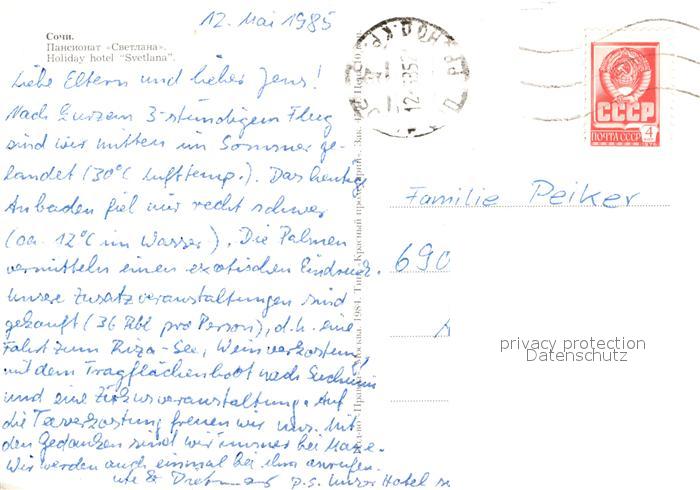 12. Mai 1985
Сочи.
Пансионат «Светлана».
Holiday hotel "Svetlana".
Liebe Eltern und lieber Jens!
Nach kurzem 3-stündigem Flug
sind wir mitten im Sommer ge-
landet (30°C Lufttemp.). Das heutige
Anbaden fiel mir recht schwer
(ca. 12°C im Wasser). Die Palmen
vermitteln einen exotischen Eindruck.
Unsere Zusatzveranstaltungen sind
gekauft (36 Rbl pro Person), d.h. eine
Fahrt zum Riza-See, Weinverkostung,
mit dem Tragflächenboot nach Suchumi
und eine Zirkusveranstaltung. Auf
die Teeverkostung freuen wir uns. Mit
den Gedanken sind wir immer bei
Wir werden auch einmal bei ihm anrufen.
P.S. Unser Hotel
СССР
ПОЧТА СССР
4
Familie Peiker
690
privacy protection
Datenschutz